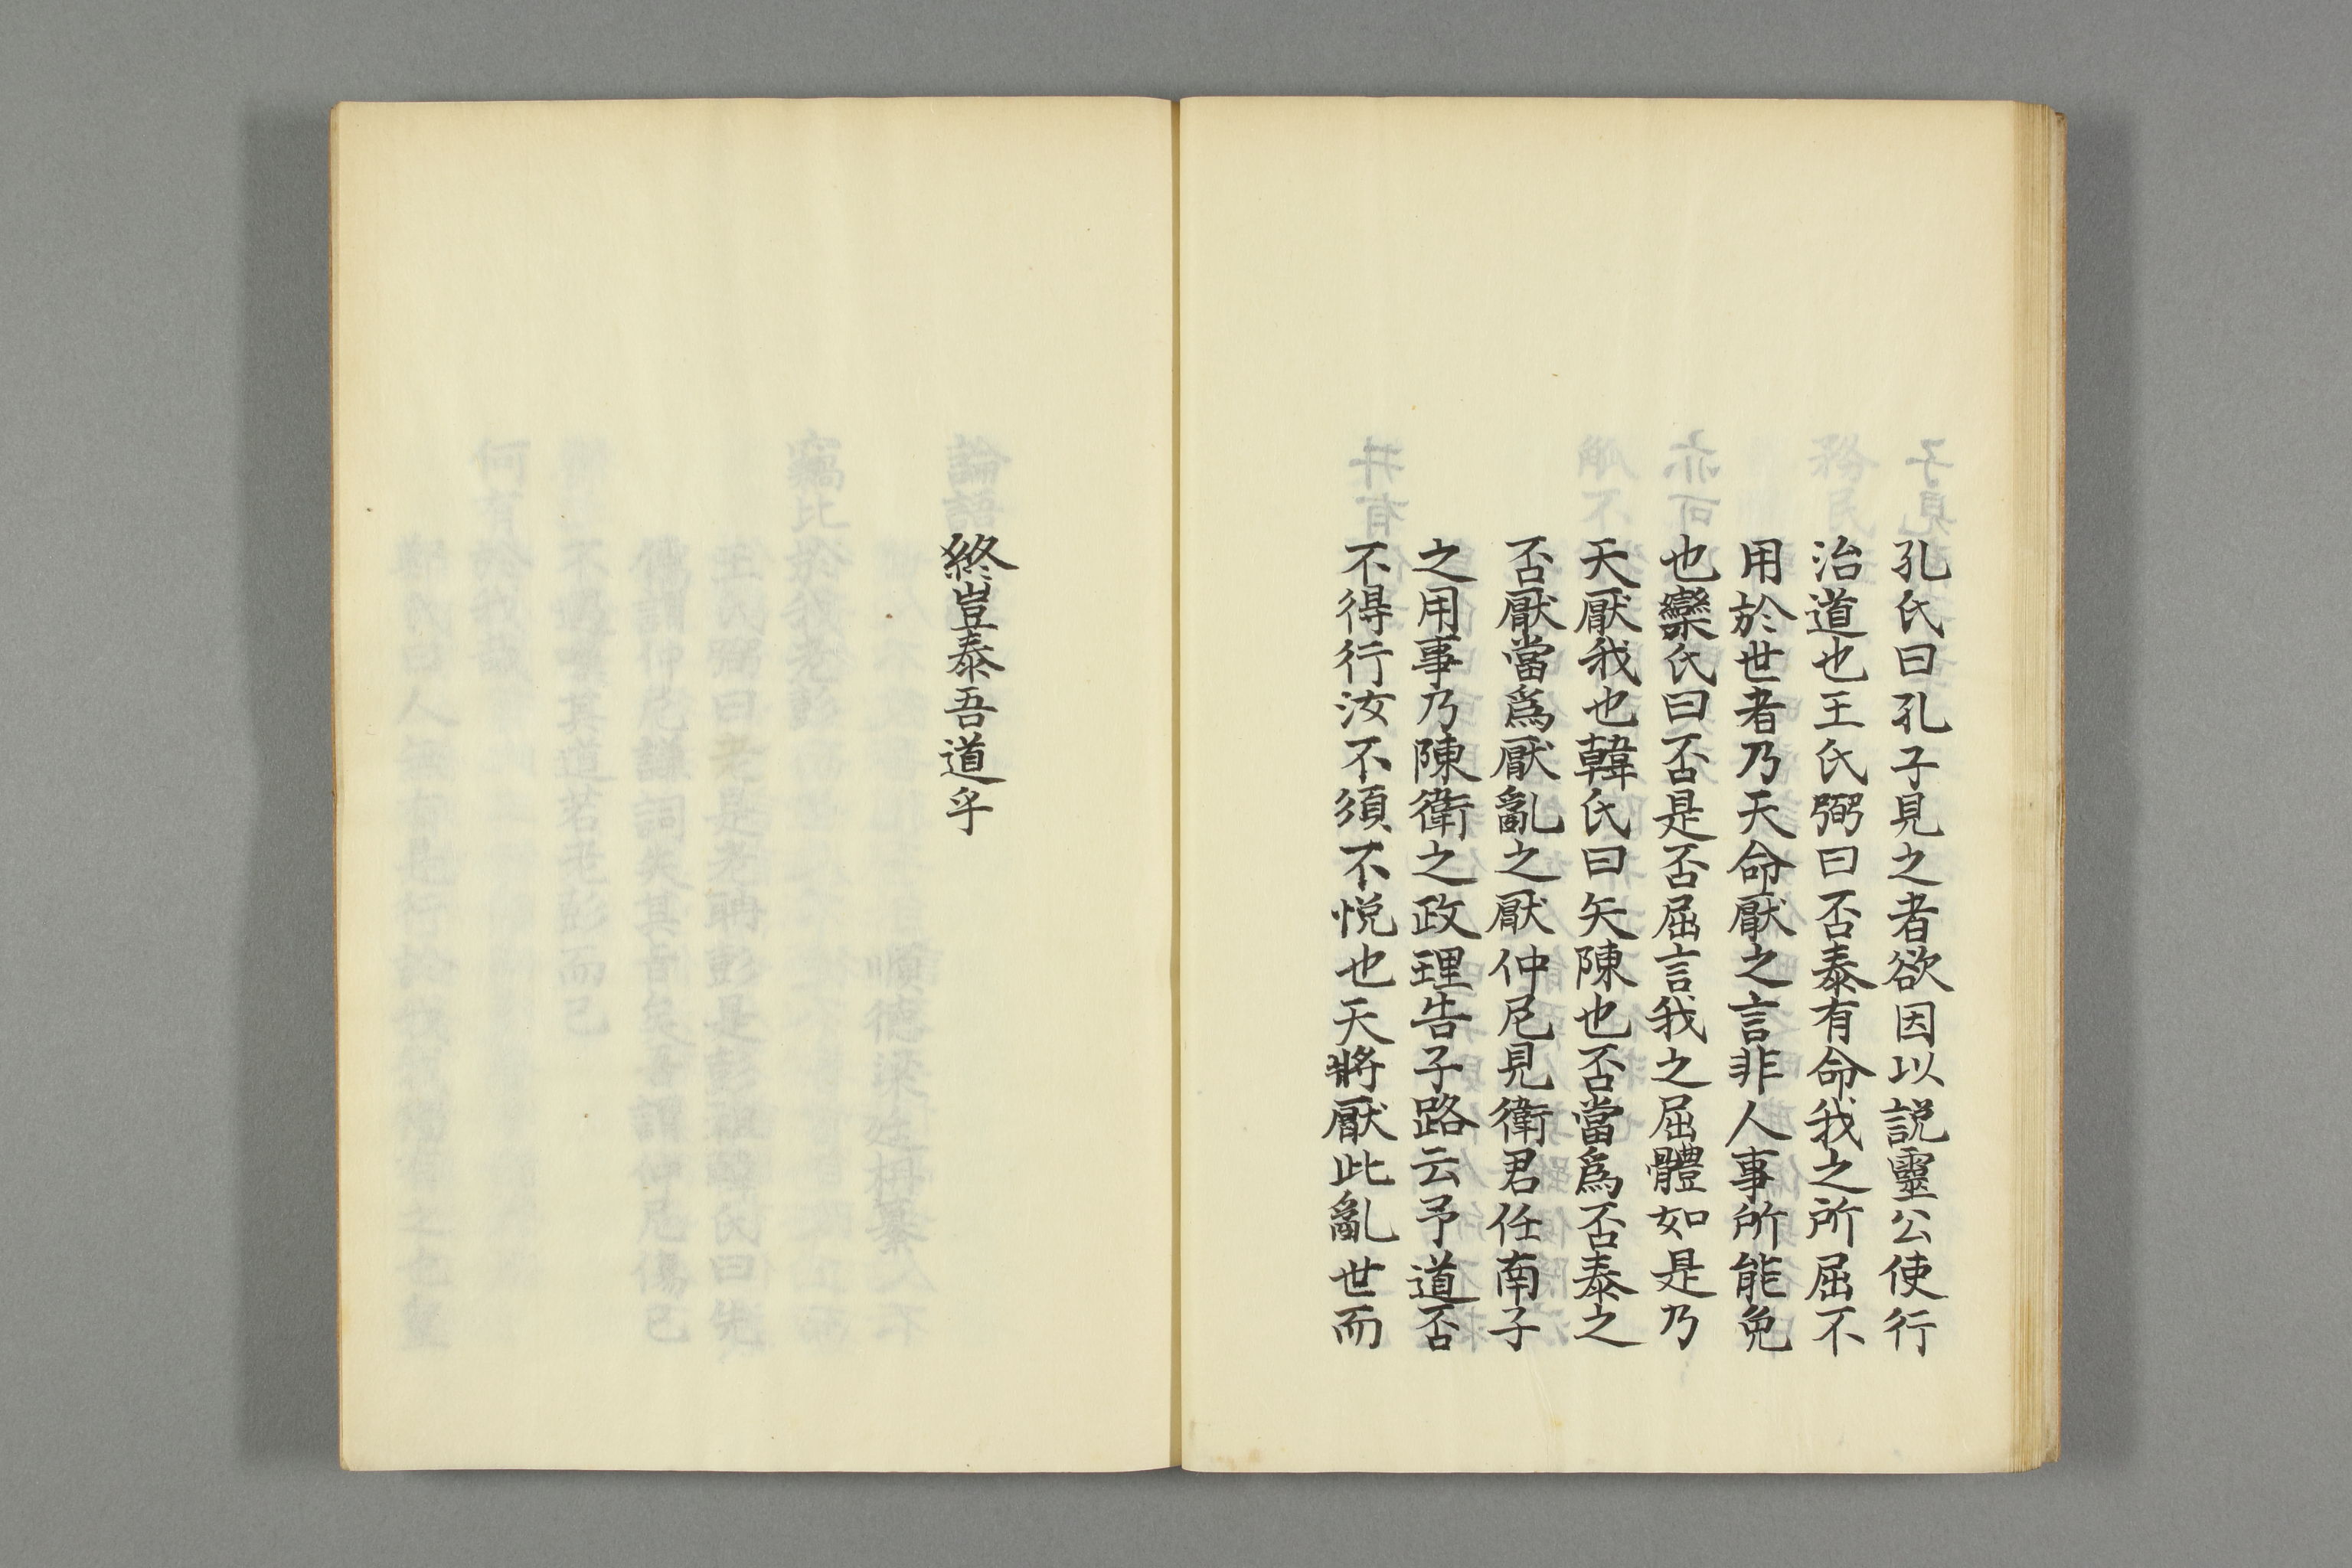 孔氏曰孔子見之者欲因以説靈公使行
治道也王氏弼曰否泰有命我之所屈不
用於世者乃天命厭之言非人事所能免
也欒氏曰否是否屈言我之屈體如是乃
天厭我也韓氏曰矢陳也否當爲否泰之
否厭當爲厭亂之厭仲尼見衛君任南子
之用事乃陳衛之政理告子路云予道否
不得行汝不須不悦也天將厭此亂世而
終豈泰吾道乎